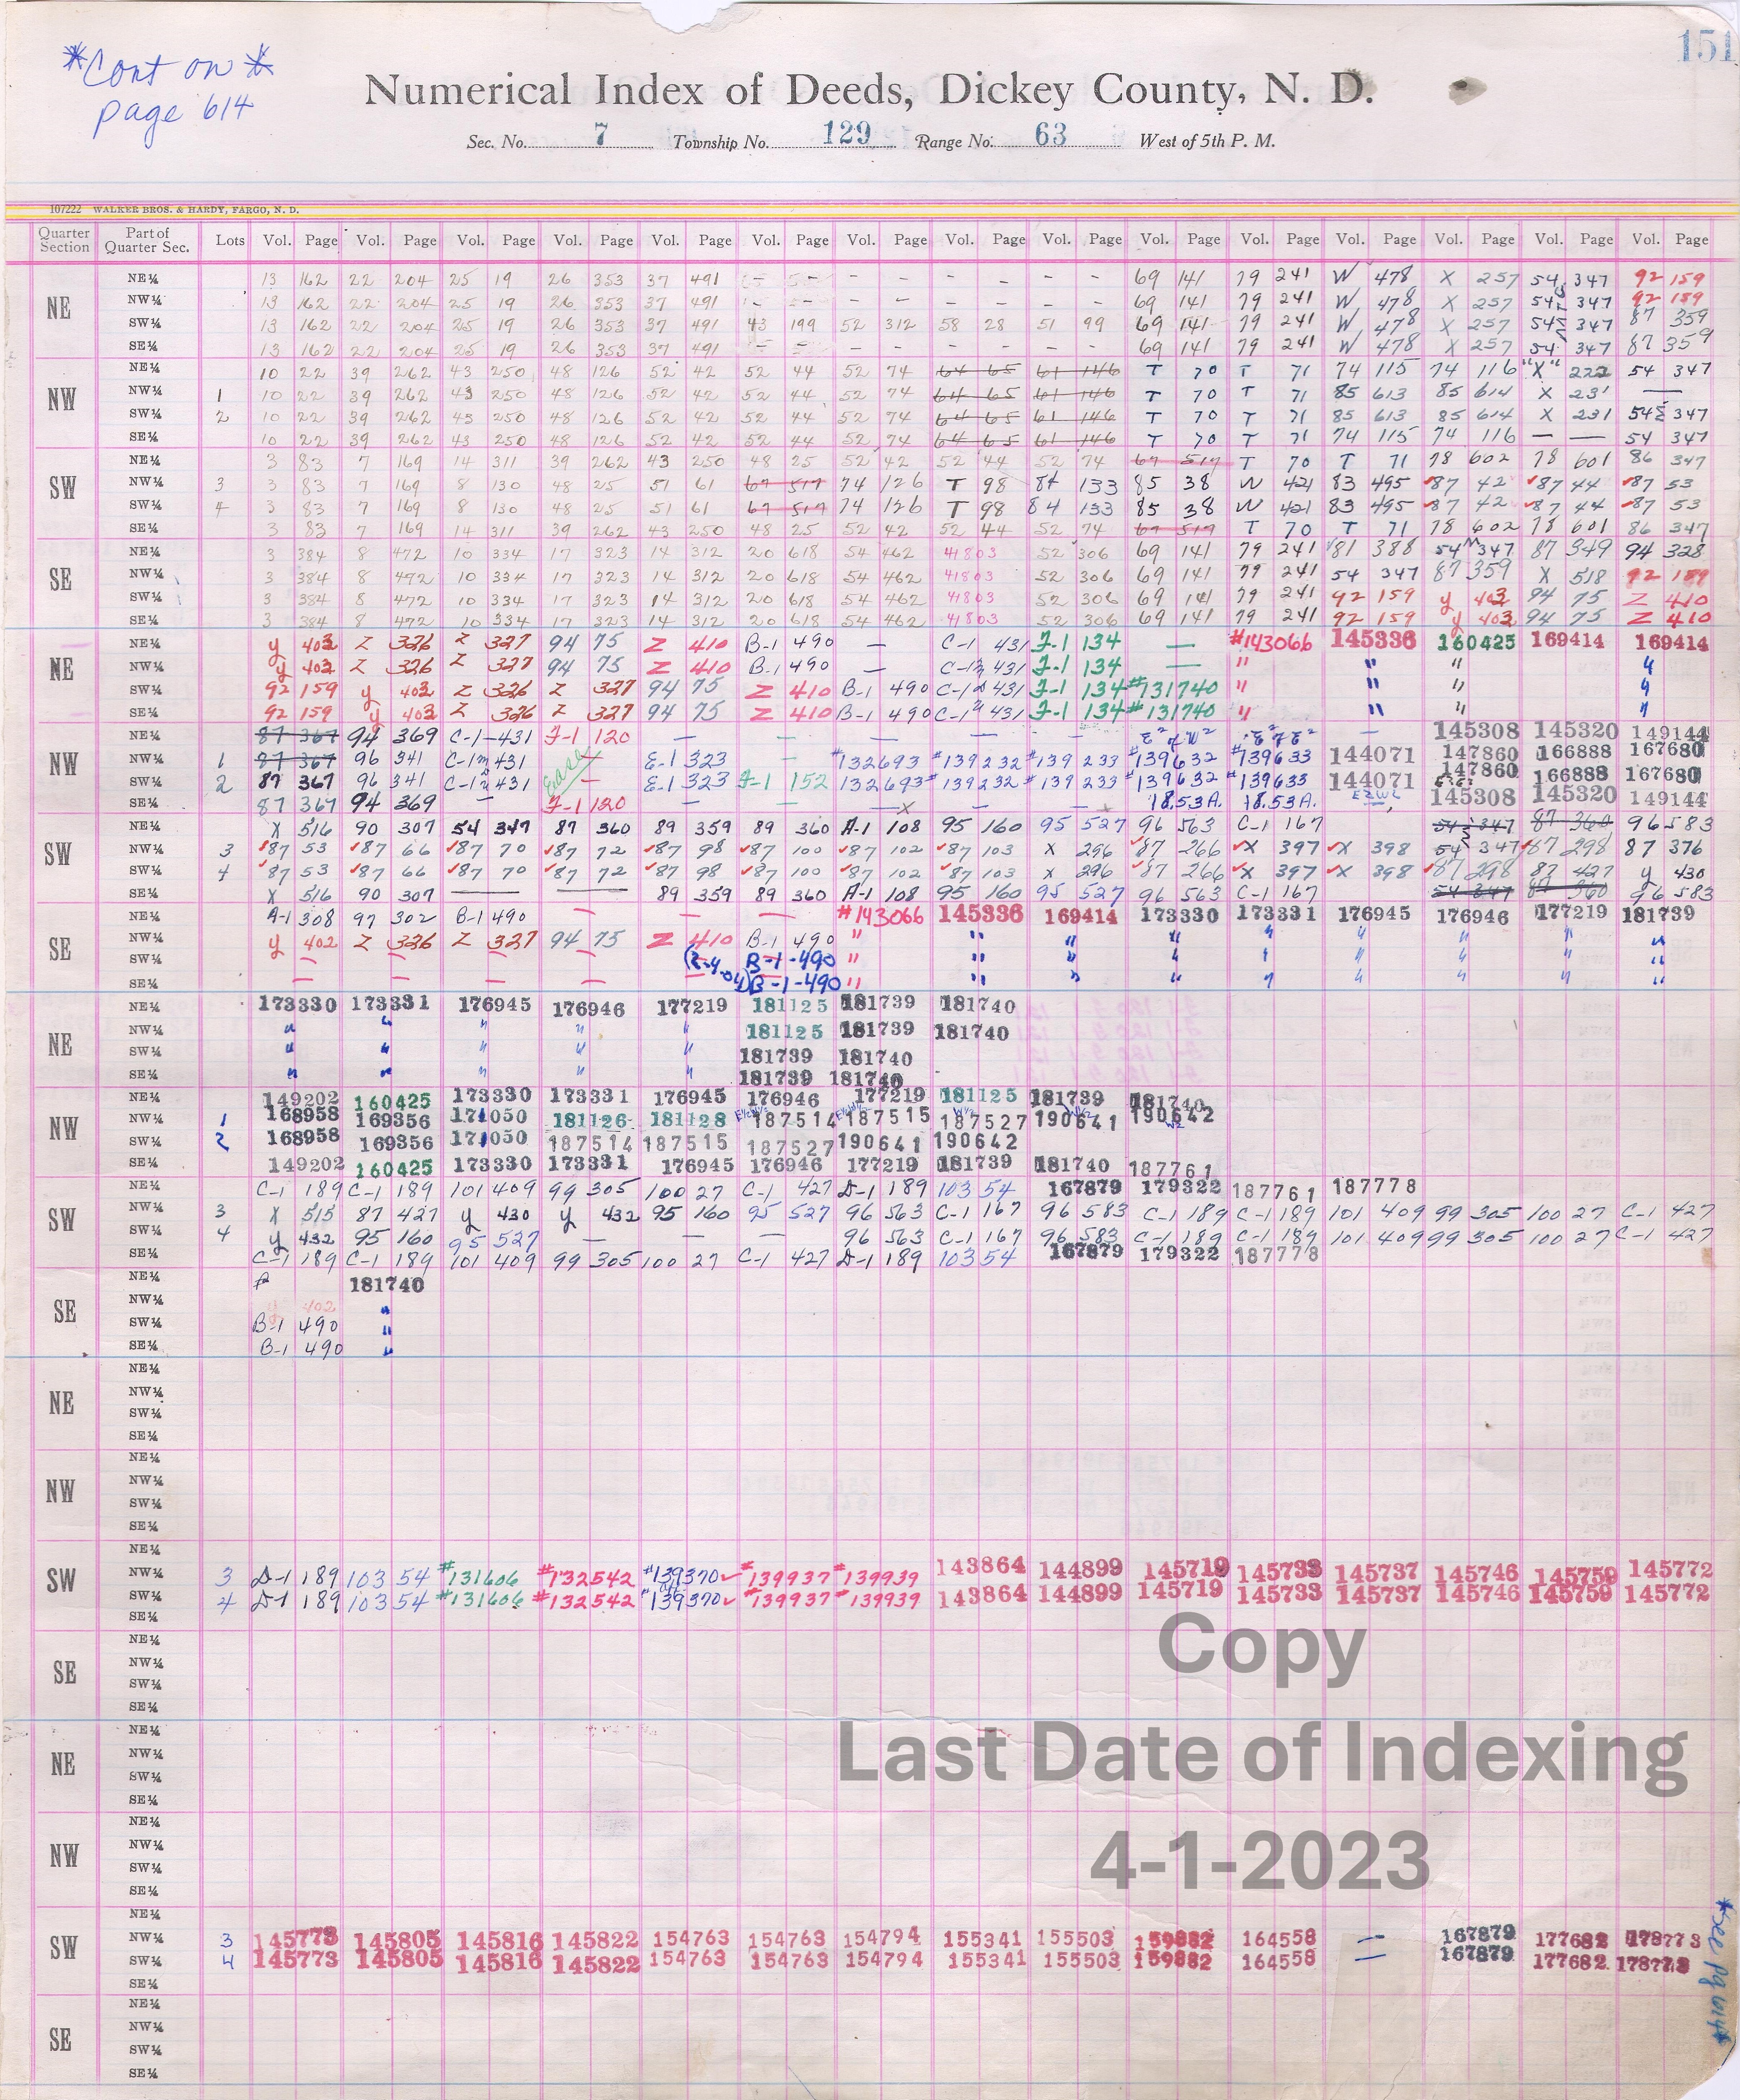 *Cont on *
page 614
151
Numerical Index of Deeds, Dickey County, N. D.
Sec. No. 7 Township No. 129 Range No. 63 West of 5th P. M.
107222 WALKER BROS. & HARDY, FARGO, N. D.
Quarter Section Part of Quarter Sec. Lots Vol. Page Vol. Page Vol. Page Vol. Page Vol. Page Vol. Page Vol. Page Vol. Page Vol. Page Vol. Page Vol. Page Vol. Page Vol. Page Vol. Page Vol. Page
NE
NE¼ 13 162 22 204 25 19 26 353 37 491 - - - - - - - - 69 141 79 241 W 478 X 257 54 347 92 159
NW¼ 13 162 22 204 25 19 26 353 37 491 - - - - - - - - 69 141 79 241 W 478 X 257 54 347 92 159
SW¼ 13 162 22 204 25 19 26 353 37 491 43 199 52 312 58 28 51 99 69 141 79 241 W 478 X 257 54 347 87 359
SE¼ 13 162 22 204 25 19 26 353 37 491 - - - - - - - - 69 141 79 241 W 478 X 257 54 347 87 359
NW
NE¼ 10 22 39 262 43 250 48 126 52 42 52 44 52 74 64 65 61 146 T 70 T 71 74 115 74 116 "X" 222 54 347
NW¼ 1 10 22 39 262 43 250 48 126 52 42 52 44 52 74 64 65 61 146 T 70 T 71 85 613 85 614 X 231 —
SW¼ 2 10 22 39 262 43 250 48 126 52 42 52 44 52 74 64 65 61 146 T 70 T 71 85 613 85 614 X 231 54 347
SE¼ 10 22 39 262 43 250 48 126 52 42 52 44 52 74 64 65 61 146 T 70 T 71 74 115 74 116 — — 54 347
SW
NE¼ 3 83 7 169 14 311 39 262 43 250 48 25 52 42 52 44 52 74 67 517 T 70 T 71 78 602 78 601 86 347
NW¼ 3 3 83 7 169 8 130 48 25 51 61 67 517 74 126 T 98 84 133 85 38 W 421 83 495 87 42 87 44 87 53
SW¼ 4 3 83 7 169 8 130 48 25 51 61 67 517 74 126 T 98 84 133 85 38 W 421 83 495 87 42 87 44 87 53
SE¼ 3 83 7 169 14 311 39 262 43 250 48 25 52 42 52 44 52 74 67 517 T 70 T 71 78 602 78 601 86 347
SE
NE¼ 3 384 8 472 10 334 17 323 14 312 20 618 54 462 41803 52 306 69 141 79 241 81 388 54 347 87 349 94 328
NW¼ 3 384 8 472 10 334 17 323 14 312 20 618 54 462 41803 52 306 69 141 79 241 54 347 87 359 X 518 92 159
SW¼ 3 384 8 472 10 334 17 323 14 312 20 618 54 462 41803 52 306 69 141 79 241 92 159 y 403 94 75 Z 410
SE¼ 3 384 8 472 10 334 17 323 14 312 20 618 54 462 41803 52 306 69 141 79 241 92 159 y 403 94 75 Z 410
NE
NE¼ y 403 Z 326 Z 327 94 75 Z 410 B-1 490 — C-1 431 F-1 134 — #143066 145336 160425 169414 169414
NW¼ y 402 Z 326 Z 327 94 75 Z 410 B-1 490 — C-1 431 F-1 134 — " " " "
SW¼ 92 159 y 403 Z 326 Z 327 94 75 Z 410 B-1 490 C-1 431 F-1 134 #131740 " " " "
SE¼ 92 159 y 403 Z 326 Z 327 94 75 Z 410 B-1 490 C-1 431 F-1 134 #131740 " " " "
NW
NE¼ 87 367 94 369 C-1 431 F-1 120 — — — — — E²of W² E²E² — 145308 145320 149144
NW¼ 1 87 367 96 341 C-1 431 Ease — E-1 323 — #132693 #139232 #139233 #139632 #139633 144071 147860 166888 167680
SW¼ 2 87 367 96 341 C-1 431 — E-1 323 F-1 152 132693 #139232 #139233 #139632 #139633 144071 147860 166888 167680
SE¼ 87 367 94 369 — F-1 120 — — —x 18.53A. 18.53A. E2W2 145308 145320 149144
SW
NE¼ X 516 90 307 54 347 87 360 89 359 89 360 A-1 108 95 160 95 527 96 563 C-1 167 54 347 87 360 96 583
NW¼ 3 87 53 87 66 87 70 87 72 87 98 87 100 87 102 87 103 X 296 87 266 X 397 X 398 54 347 87 298 87 376
SW¼ 4 87 53 87 66 87 70 87 72 87 98 87 102 87 103 X 296 87 266 X 397 X 398 87 298 87 427 y 430
SE¼ X 516 90 307 — — 89 359 89 360 A-1 108 95 160 95 527 96 563 C-1 167 54 347 87 360 96 583
SE
NE¼ A-1 308 97 302 B-1 490 — — — #143066 145336 169414 173330 173331 176945 176946 177219 181739
NW¼ y 402 Z 326 Z 327 94 75 Z 410 B-1 490 " " " " " " " " "
SW¼ — — — — B-1-490 " " " " " " " " "
SE¼ — — — — B-1-490 " " " " " " " " "
NE
NE¼ 173330 173331 176945 176946 177219 181125 181739 181740
NW¼ " " " " " 181125 181739 181740
SW¼ " " " " " 181739 181740
SE¼ " " " " " 181739 181740
NW
NE¼ 149202 160425 173330 173331 176945 176946 177219 181125 181739 181740
NW¼ 1 168958 169356 171050 181126 181128 187514 187515 187527 190641 190642
SW¼ 2 168958 169356 171050 187514 187515 187527 190641 190642
SE¼ 149202 160425 173330 173331 176945 176946 177219 181739 181740 187761
SW
NE¼ C-1 189 C-1 189 101 409 99 305 100 27 C-1 427 D-1 189 103 54 167879 179322 187761 187778
NW¼ 3 X 515 87 427 y 430 y 432 95 160 95 527 96 563 C-1 167 96 583 C-1 189 C-1 189 101 409 99 305 100 27 C-1 427
SW¼ 4 y 432 95 160 95 527 — — — 96 563 C-1 167 96 583 C-1 189 C-1 189 101 409 99 305 100 27 C-1 427
SE¼ C-1 189 C-1 189 101 409 99 305 100 27 C-1 427 D-1 189 103 54 167879 179322 187778
SE
NE¼ 181740
NW¼ y 402 "
SW¼ B-1 490 "
SE¼ B-1 490 "
NE
NE¼
NW¼
SW¼
SE¼
NW
NE¼
NW¼
SW¼
SE¼
SW
NE¼
NW¼ 3 D-1 189 103 54 #131606 #132542 #139370 #139937 #139939 143864 144899 145719 145733 145737 145746 145759 145772
SW¼ 4 D-1 189 103 54 #131606 #132542 #139370 #139937 #139939 143864 144899 145719 145733 145737 145746 145759 145772
SE¼
SE
NE¼
NW¼
SW¼
SE¼
NE
NE¼
NW¼
SW¼
SE¼
NW
NE¼
NW¼
SW¼
SE¼
SW
NE¼
NW¼ 3 145773 145805 145816 145822 154763 154763 154794 155341 155503 159882 164558 — 167879 177682 178773
SW¼ 4 145773 145805 145816 145822 154763 154763 154794 155341 155503 159882 164558 — 167879 177682 178773
SE¼
SE
NE¼
NW¼
SW¼
SE¼
Copy
Last Date of Indexing
4-1-2023
*See pg 614*